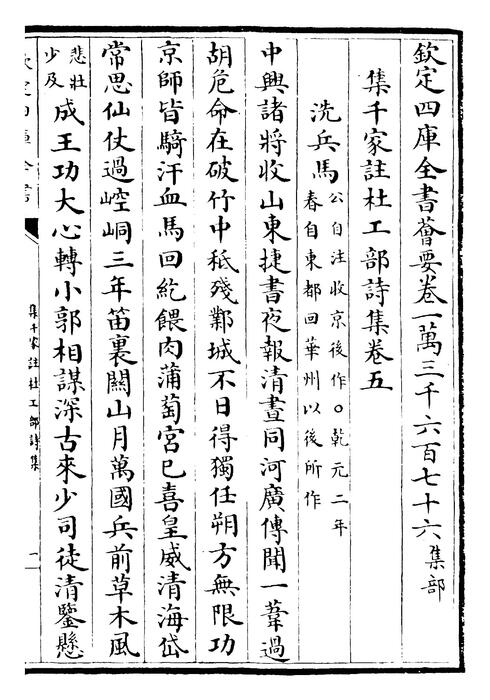 欽定四庫全書薈要卷一萬三千六百七十六集部
集千家註杜工部詩集卷五
洗兵馬公自注收京後作○乾元二年
春自東都回華州以後所作
中興諸將收山東捷書夜報清晝同河廣傳聞一葦過
胡危命在破竹中秪殘鄴城不日得獨任朔方無限功
京師皆騎汗血馬回紇餵肉蒲萄宮已喜皇威清海岱
常思仙仗過崆峒三年笛裏關山月萬國兵前草木風
悲壯
少及
成王功大心轉小郭相謀深古來少司徒清鑒懸
欽定四庫全書
集千家註杜工部詩集
一